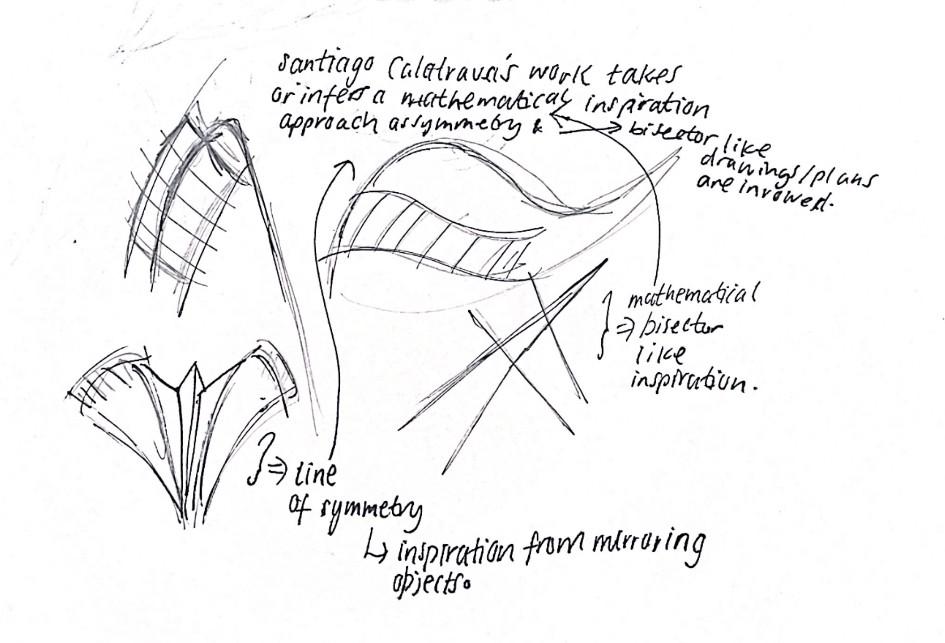 Santiago Calatrava's work takes
or infers a mathematical inspiration
approach assymmetry & → bisector like
drawings/plans
are invowed.
mathematical
⇒ bisector
like
inspiration.
⇒ line
of symmetry
↳ inspiration from mirroring
objects.